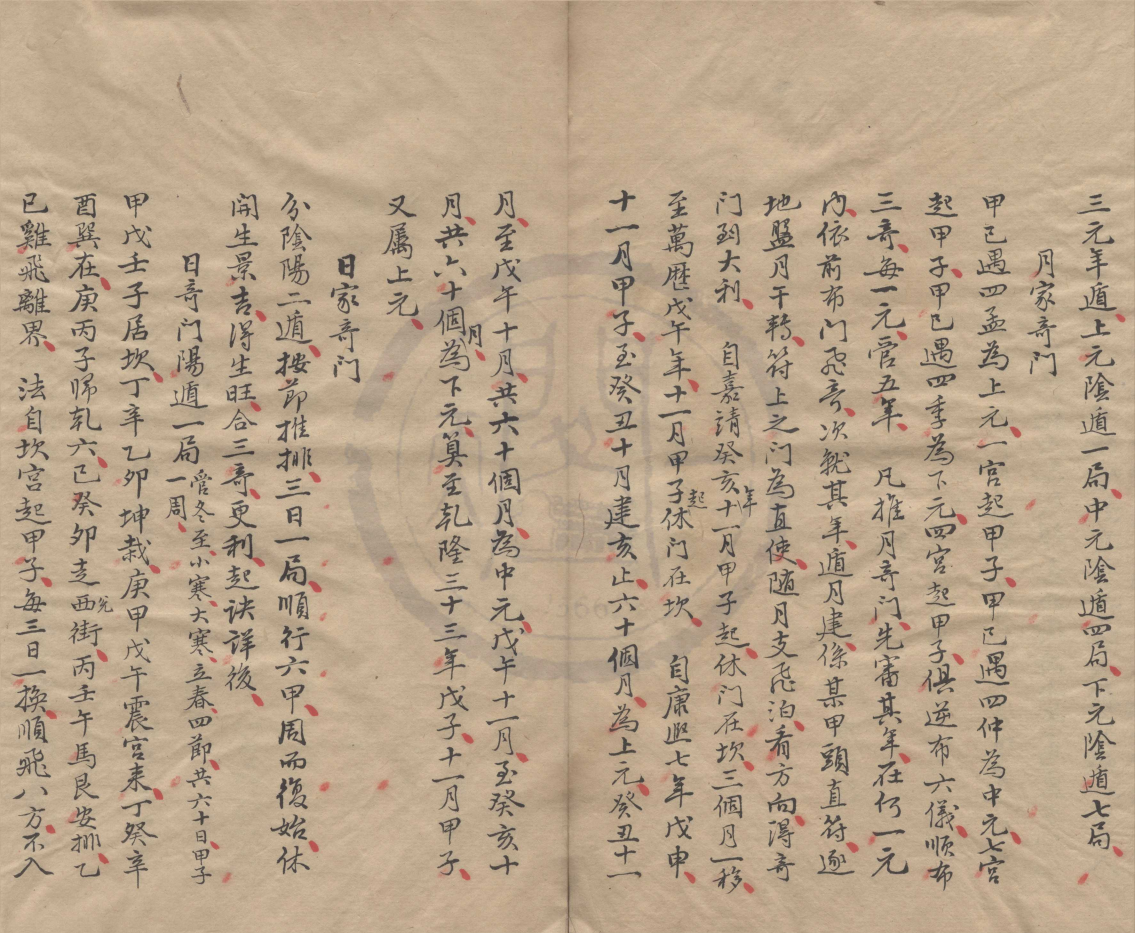 三元年遁上元陰遁一局中元陰遁四局下元陰遁七局
月家奇门
甲己遇四孟為上元一宫起甲子甲己遇四仲為中元七宫
起甲子甲己遇四季為下元四宫起甲子俱逆布六儀順布
三奇每一元管五年　凡推月奇门先審其年在何一元
内依前布门飛奇次就其年遁月建係某甲頭直符逐
地盤月干轉符上之门為直使随月支飛泊看方向得奇
门到大利　自嘉靖癸亥年十一月甲子起休门在坎三個月一移
至萬歷戊午年十一月甲子起休门在坎　自康熙七年戊申
十一月甲子至癸丑十月建亥止六十個月為上元癸丑十一
月至戊午十月共六十個月為中元戊午十一月至癸亥十
月共六十個月為下元算至乹隆三十三年戊子十一月甲子
又属上元
日家奇门
分陰陽二遁按節推排三日一局順行六甲周而復始休
開生景吉得生旺合三奇更利起诀詳後
日奇门陽遁一局一周管冬至小寒大寒立春四節共六十日甲子
甲戊壬子居坎丁辛乙卯坤栽庚甲戊午震宫来丁癸辛
酉巽在庚丙子歸乹六己癸卯走西兌街丙壬午馬艮安排乙
已雞飛離界　法自坎宫起甲子每三日一换順飛八方不入